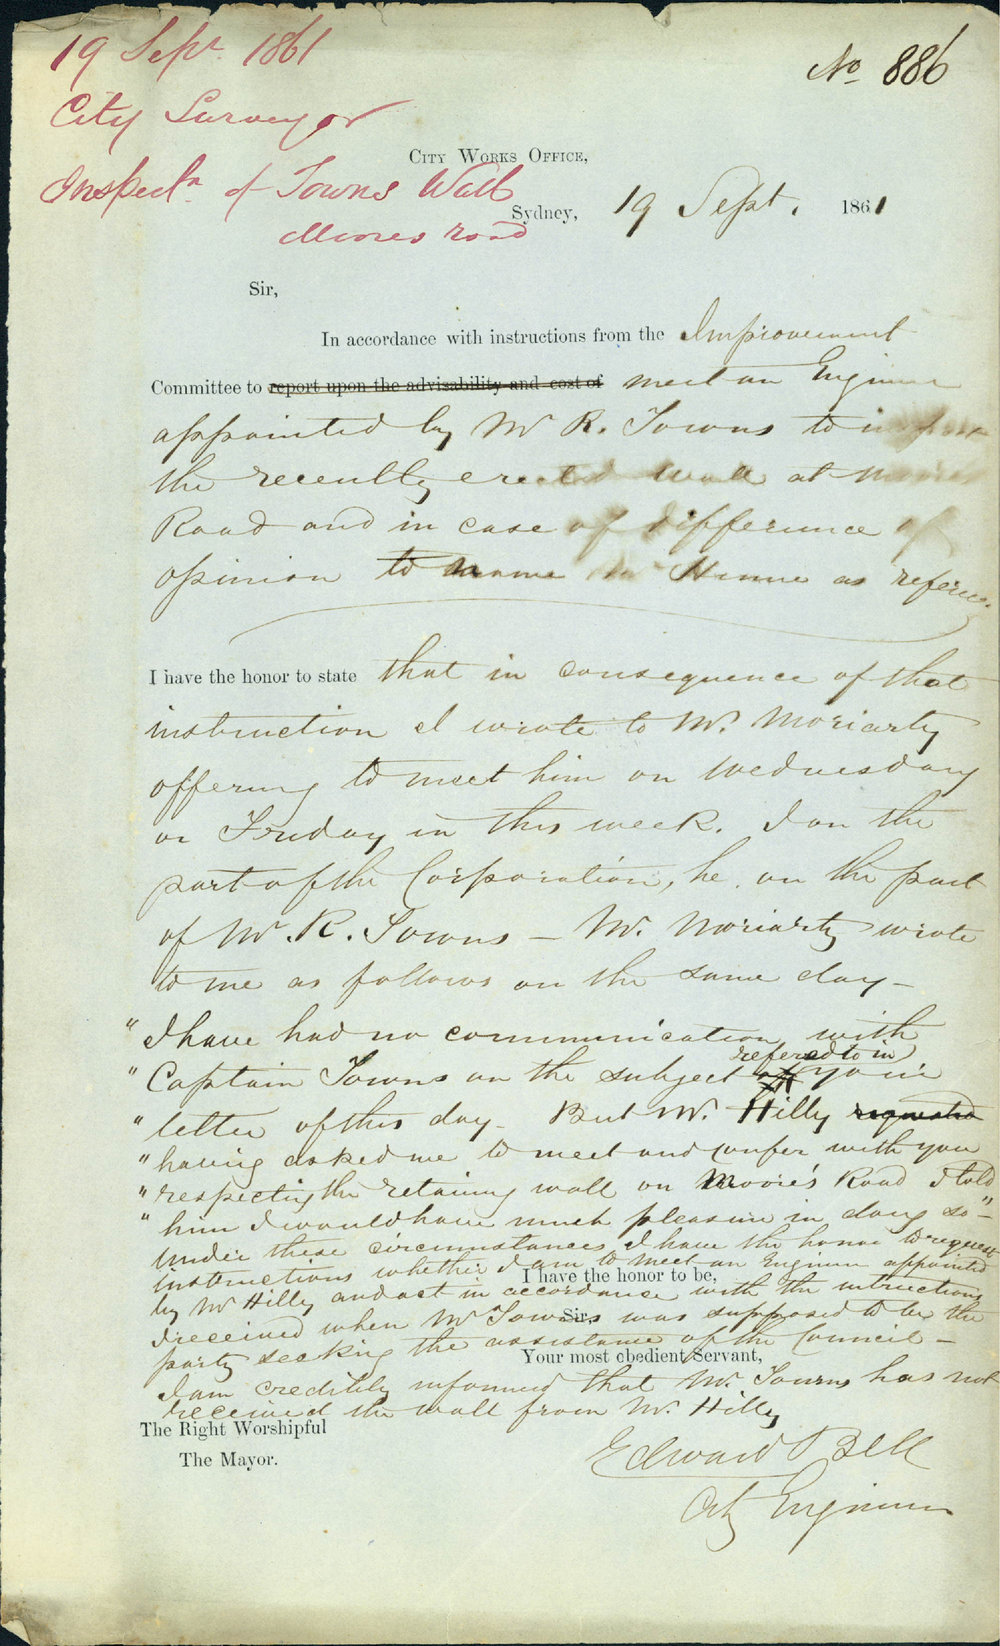 19 Sept 1861
No 886
City Surveyor
City Works Office,
Inspectn of Towns Wall
Moores road
Sydney, 19 Sept. 1861
Sir,
In accordance with instructions from the Improvement
Committee to report upon the advisability and cost of meet an Engineer
appointed by Mr R. Towns to inspect
the recently erected wall at Moores
Road and in case of difference of
opinion to name Mr Hume as referee.
I have the honor to state that in consequence of that
instruction I wrote to Mr. Moriarty
offering to meet him on Wednesday
or Friday in this week. I on the
part of the Corporation, he on the part
of Mr. R. Towns – Mr. Moriarty wrote
to me as follows on the same day –
"I have had no communication with
"Captain Towns on the subject refered to in your
"letter of this day – But Mr. Hilly requested
"having asked me to meet and confer with you
"respecting the retaining wall on Moore's Road I told
"him I would have much pleasure in doing so" –
Under these circumstances I have the honor to request
instructions whether I am to meet an Engineer appointed
I have the honor to be,
by Mr Hilly and act in accordance with the intructions
Sir,
I received when Mr Towns was supposed to be the
party seeking the assistance of the Council –
Your most obedient Servant,
I am credibly informed that Mr. Towns has not
received the wall from Mr. Hilly
The Right Worshipful
The Mayor.
Edward Bell
City Engineer